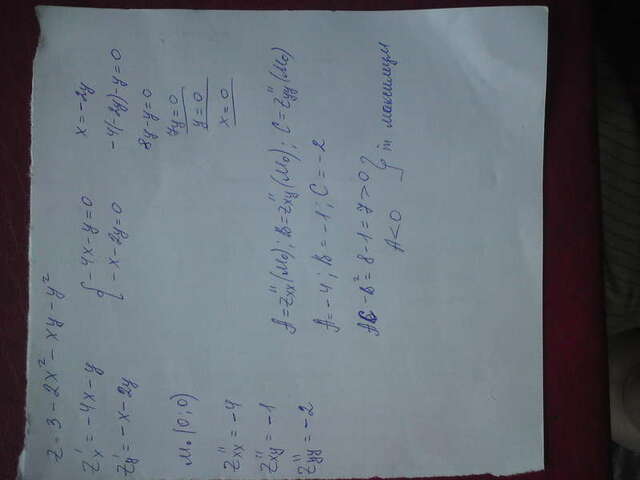 z = 3 - 2x² - xy - y²
z'x = -4x - y
z'y = -x - 2y
{ -4x - y = 0
-x - 2y = 0
x = -2y
-4(-2y) - y = 0
8y - y = 0
7y = 0
y = 0
x = 0
M₀ (0; 0)
z''xx = -4
z''xy = -1
z''yy = -2
A = z''xx(M₀); B = z''xy(M₀); C = z''yy(M₀)
A = -4; B = -1; C = -2
AC - B² = 8 - 1 = 7 > 0 }
A < 0
максимум